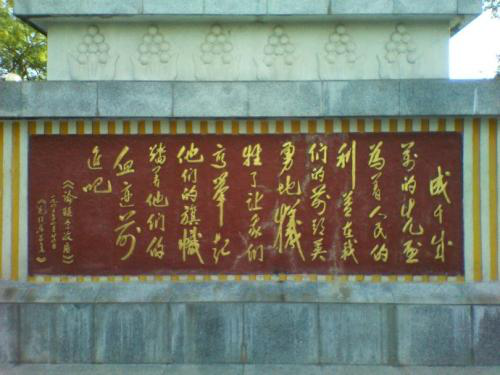 成千成
萬的先烈
為着人民的
利益在我
们的前头英
勇地犧
牲了让我们
高举起
他们的旗幟
踏着他们的
血迹前
进吧
《論联合政府》